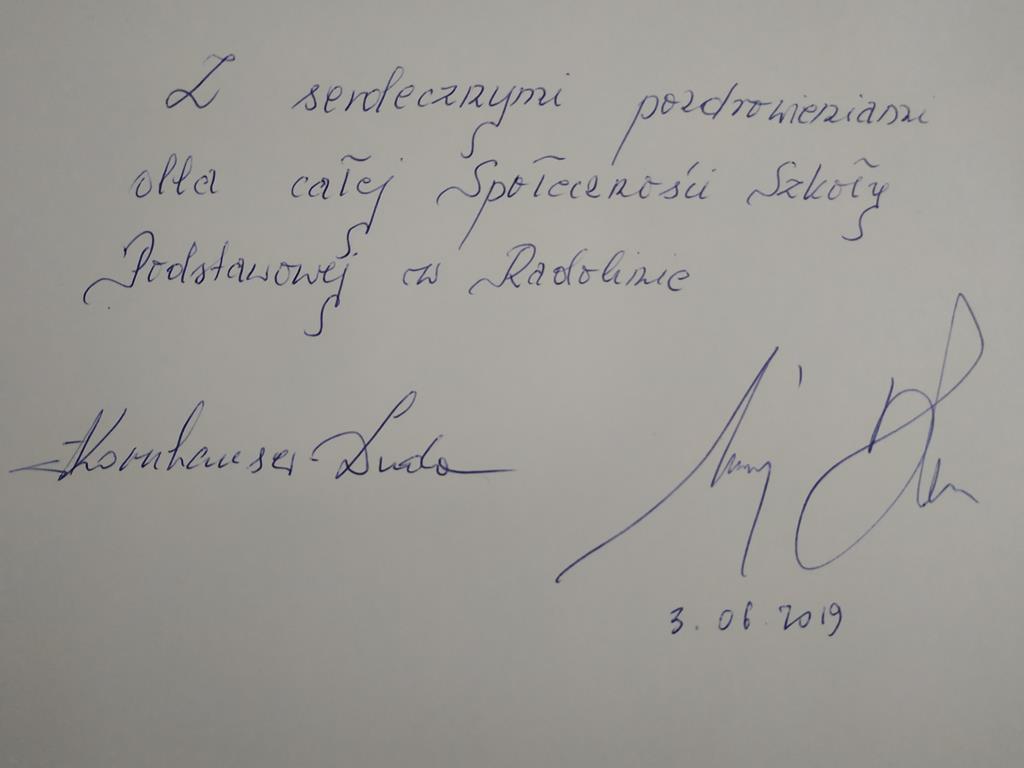 Z serdecznymi pozdrowieniami
dla całej Społeczności Szkoły
Podstawowej w Radolinie
AKornhauser-Duda
3.06.2019